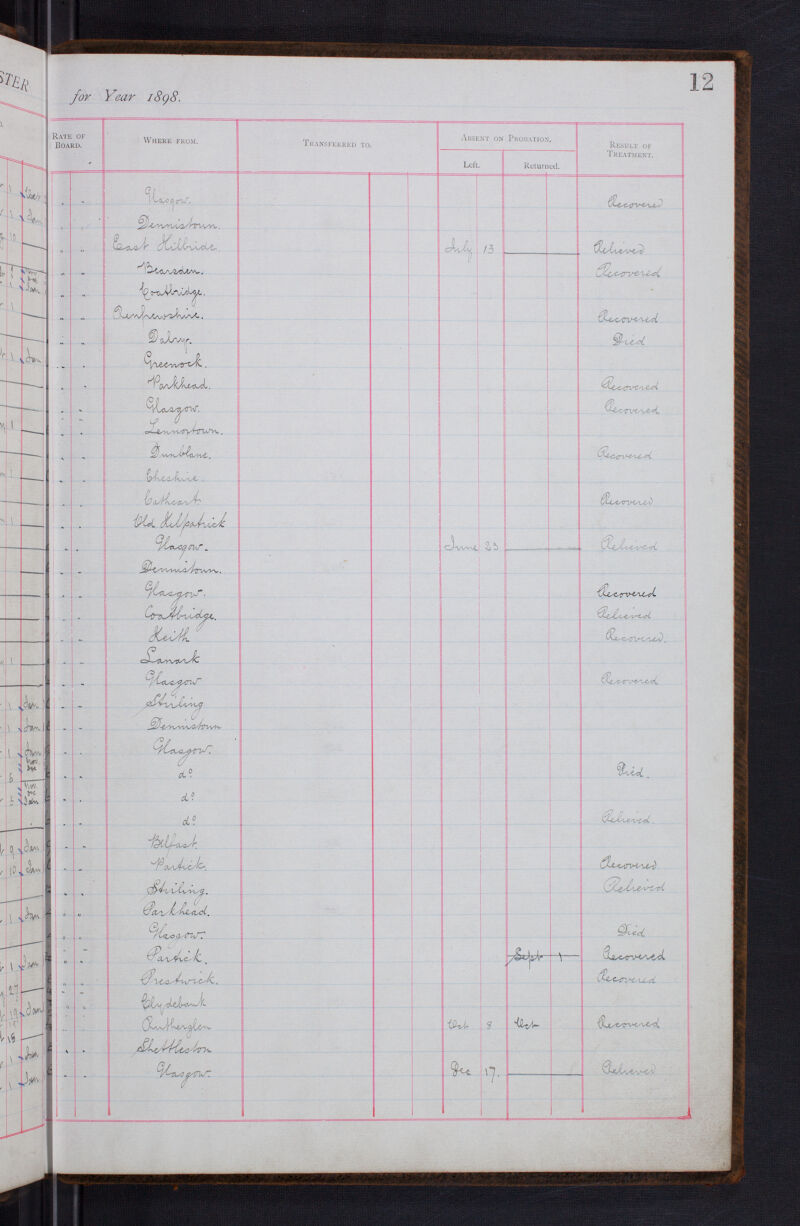 STER
12
for Year 1898.
Rate of Board. Where from. Transferred to. Absent on Probation. Result of Treatment.
Left. Returned.
Glasgow. Recovered
Dennistoun.
East Kilbride. July 13 Relieved
Bearsden. Recovered
Coatbridge.
Renfrewshire. Recovered
Dalry. Died
Greenock.
Parkhead. Recovered
Glasgow. Recovered
Lennoxtown.
Dunblane. Recovered
Cheshire.
Cathcart Recovered
Old Kilpatrick
Glasgow. June 23 Relieved
Dennistoun.
Glasgow. Recovered
Coatbridge. Relieved
Keith Recovered.
Lanark
Glasgow Recovered
Stirling
Dennistoun
Glasgow.
do Died.
do
do Relieved.
Belfast.
Partick. Recovered
Stirling. Relieved
Parkhead.
Glasgow. Died
Partick. Sept 1 Recovered
Prestwick. Recovered
Clydebank
Rutherglen Oct 8 Oct Recovered
Shettleston
Glasgow. Dec 17. Relieved